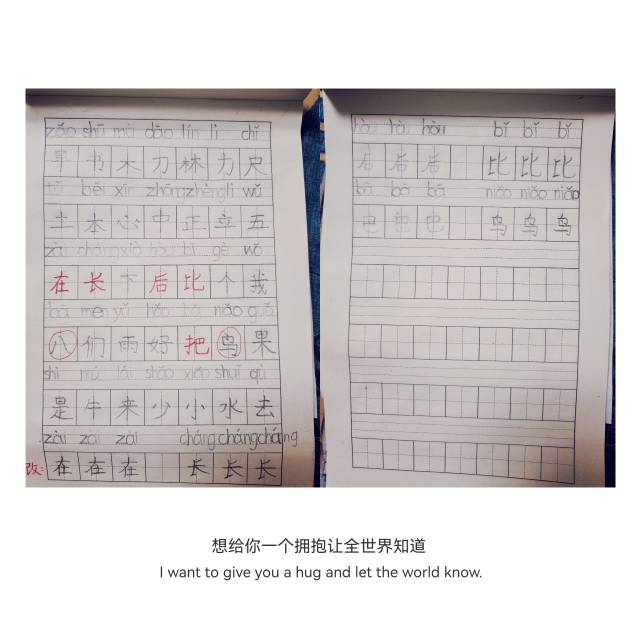 zǎo shū mù dāo lín lì chǐ
早 书 木 刀 林 力 尺
tǔ běi xīn zhōng zhèng lì wǔ
土 本 心 中 正 立 五
zài cháng xià hòu bǐ gè wǒ
在 长 下 后 比 个 我
bā men yǔ hǎo bǎ niǎo guǒ
八 们 雨 好 把 鸟 果
shì niú lái shǎo xiǎo shuǐ qù
是 牛 来 少 小 水 去
zài zài zài cháng cháng cháng
改: 在 在 在 长 长 长
hòu hòu hòu bǐ bǐ bǐ
后 后 后 比 比 比
bǎ bǎ bǎ niǎo niǎo niǎo
鸟 鸟 鸟
想给你一个拥抱让全世界知道
I want to give you a hug and let the world know.